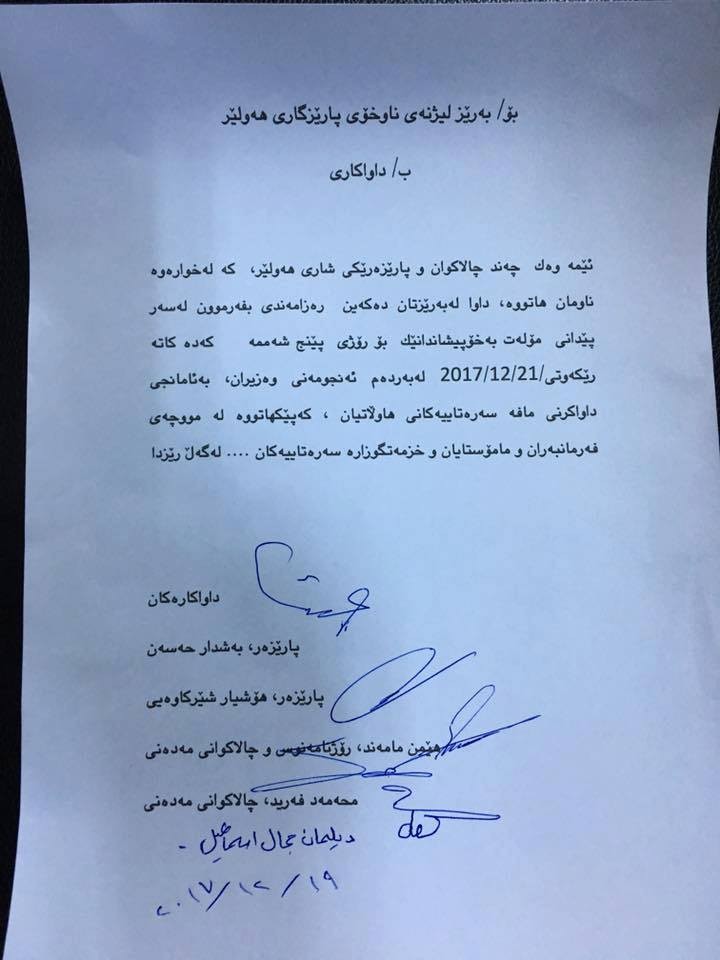 بۆ/ بەرێز لیژنەی ناوخۆی پارێزگاری هەولێر
ب/ داواکاری
ئێمە وەك چەند چالاکوان و پارێزەرێکی شاری هەولێر، کە لەخوارەوە
ناومان هاتووە، داوا لەبەرێزتان دەکەین رەزامەندی بفەرموون لەسەر
پێدانی مۆلەت بەخۆپیشاندانێك بۆ رۆژی پێنج شەممە کەدە کاتە
رێکەوتی/2017/12/21 لەبەردەم ئەنجومەنی وەزیران، بەئامانجی
داواکرنی مافە سەرەتاییەکانی هاوڵاتیان ، کەپێکهاتووە لە مووچەی
فەرمانبەران و مامۆستایان و خزمەتگوزارە سەرەتاییەکان .... لەگەڵ رێزدا
داواکارەکان
پارێزەر، بەشدار حەسەن
پارێزەر، هۆشیار شێرکاوەیی
هێمن مامەند، رۆژنامەنوس و چالاکوانی مەدەنی
محەمەد فەرید، چالاکوانی مەدەنی
دیلمان جمال اسماعیل -
٢٠١٧/١٢/١٩